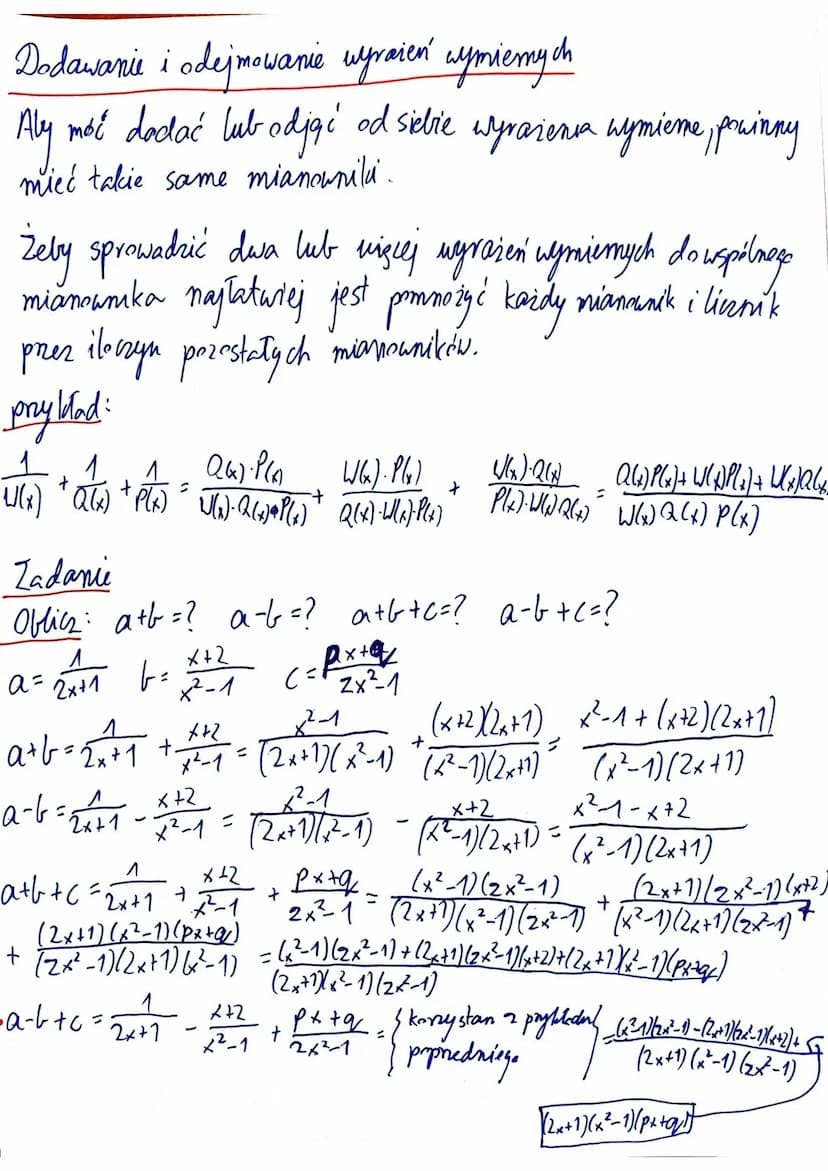 Dodawanie i odejmowanie wyrażeń wymiernych
Aby móc dodać lub odjąć od siebie wyrażenia wymierne, powinny
mieć takie same mianowniki.
Żeby sprowadzić dwa lub więcej wyrażeń wymiernych do wspólnego
mianownika najłatwiej jest pomnożyć każdy mianownik i licznik
przez iloczyn pozostałych mianowników.
przykład:
1/W(x) + 1/Q(x) + 1/P(x) = Q(x)·P(x)/W(x)·Q(x)·P(x) + W(x)·P(x)/Q(x)·W(x)·P(x) + W(x)·Q(x)/P(x)·W(x)Q(x) = Q(x)P(x)+W(x)P(x)+W(x)Q(x)/W(x)Q(x)P(x)
Zadanie
Oblicz: a+b=? a-b=? a+b+c=? a-b+c=?
a= 1/2x+1 b= x+2/x²-1 c= px+q/2x²-1
a+b= 1/2x+1 + x+2/x²-1 = x²-1/(2x+1)(x²-1) + (x+2)(2x+1)/(x²-1)(2x+1) = x²-1+(x+2)(2x+1)/(x²-1)(2x+1)
a-b= 1/2x+1 - x+2/x²-1 = x²-1/(2x+1)(x²-1) - x+2/(x²-1)(2x+1) = x²-1-x+2/(x²-1)(2x+1)
a+b+c= 1/2x+1 + x+2/x²-1 + px+q/2x²-1 = (x²-1)(2x²-1)/(2x+1)(x²-1)(2x²-1) + (2x+1)(2x²-1)(x+2)/(x²-1)(2x+1)(2x²-1) +
+ (2x+1)(x²-1)(px+q)/(2x²-1)(2x+1)(x²-1) = (x²-1)(2x²-1)+(2x+1)(2x²-1)(x+2)+(2x+1)(x²-1)(px+q)/(2x+1)(x²-1)(2x²-1)
a-b+c= 1/2x+1 - x+2/x²-1 + px+q/2x²-1 = {korzystan z przykładu poprzedniego} = (x²-1)(2x²-1)-(2x+1)(2x²-1)(x+2)+/(2x+1)(x²-1)(2x²-1)
(2x+1)(x²-1)(px+q)